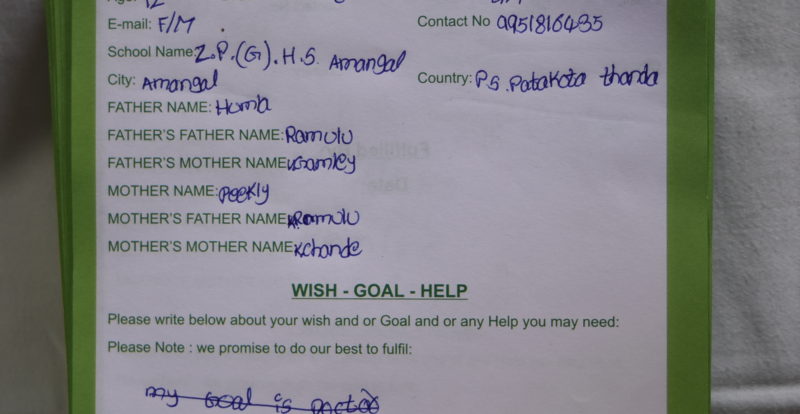 Age: 12
E-mail: F/M . Contact No 0951816435
School Name: Z.P.(G).H.S. Amangal
City: Amangal Country: P.S. Patakota thanda
FATHER NAME: Humla
FATHER'S FATHER NAME: Ramulu
FATHER'S MOTHER NAME: Kamley
MOTHER NAME: Peekly
MOTHER'S FATHER NAME: K.Ramulu
MOTHER'S MOTHER NAME: K.chande
WISH - GOAL - HELP
Please write below about your wish and or Goal and or any Help you may need:
Please Note : we promise to do our best to fulfil:
my Goal is Doctor